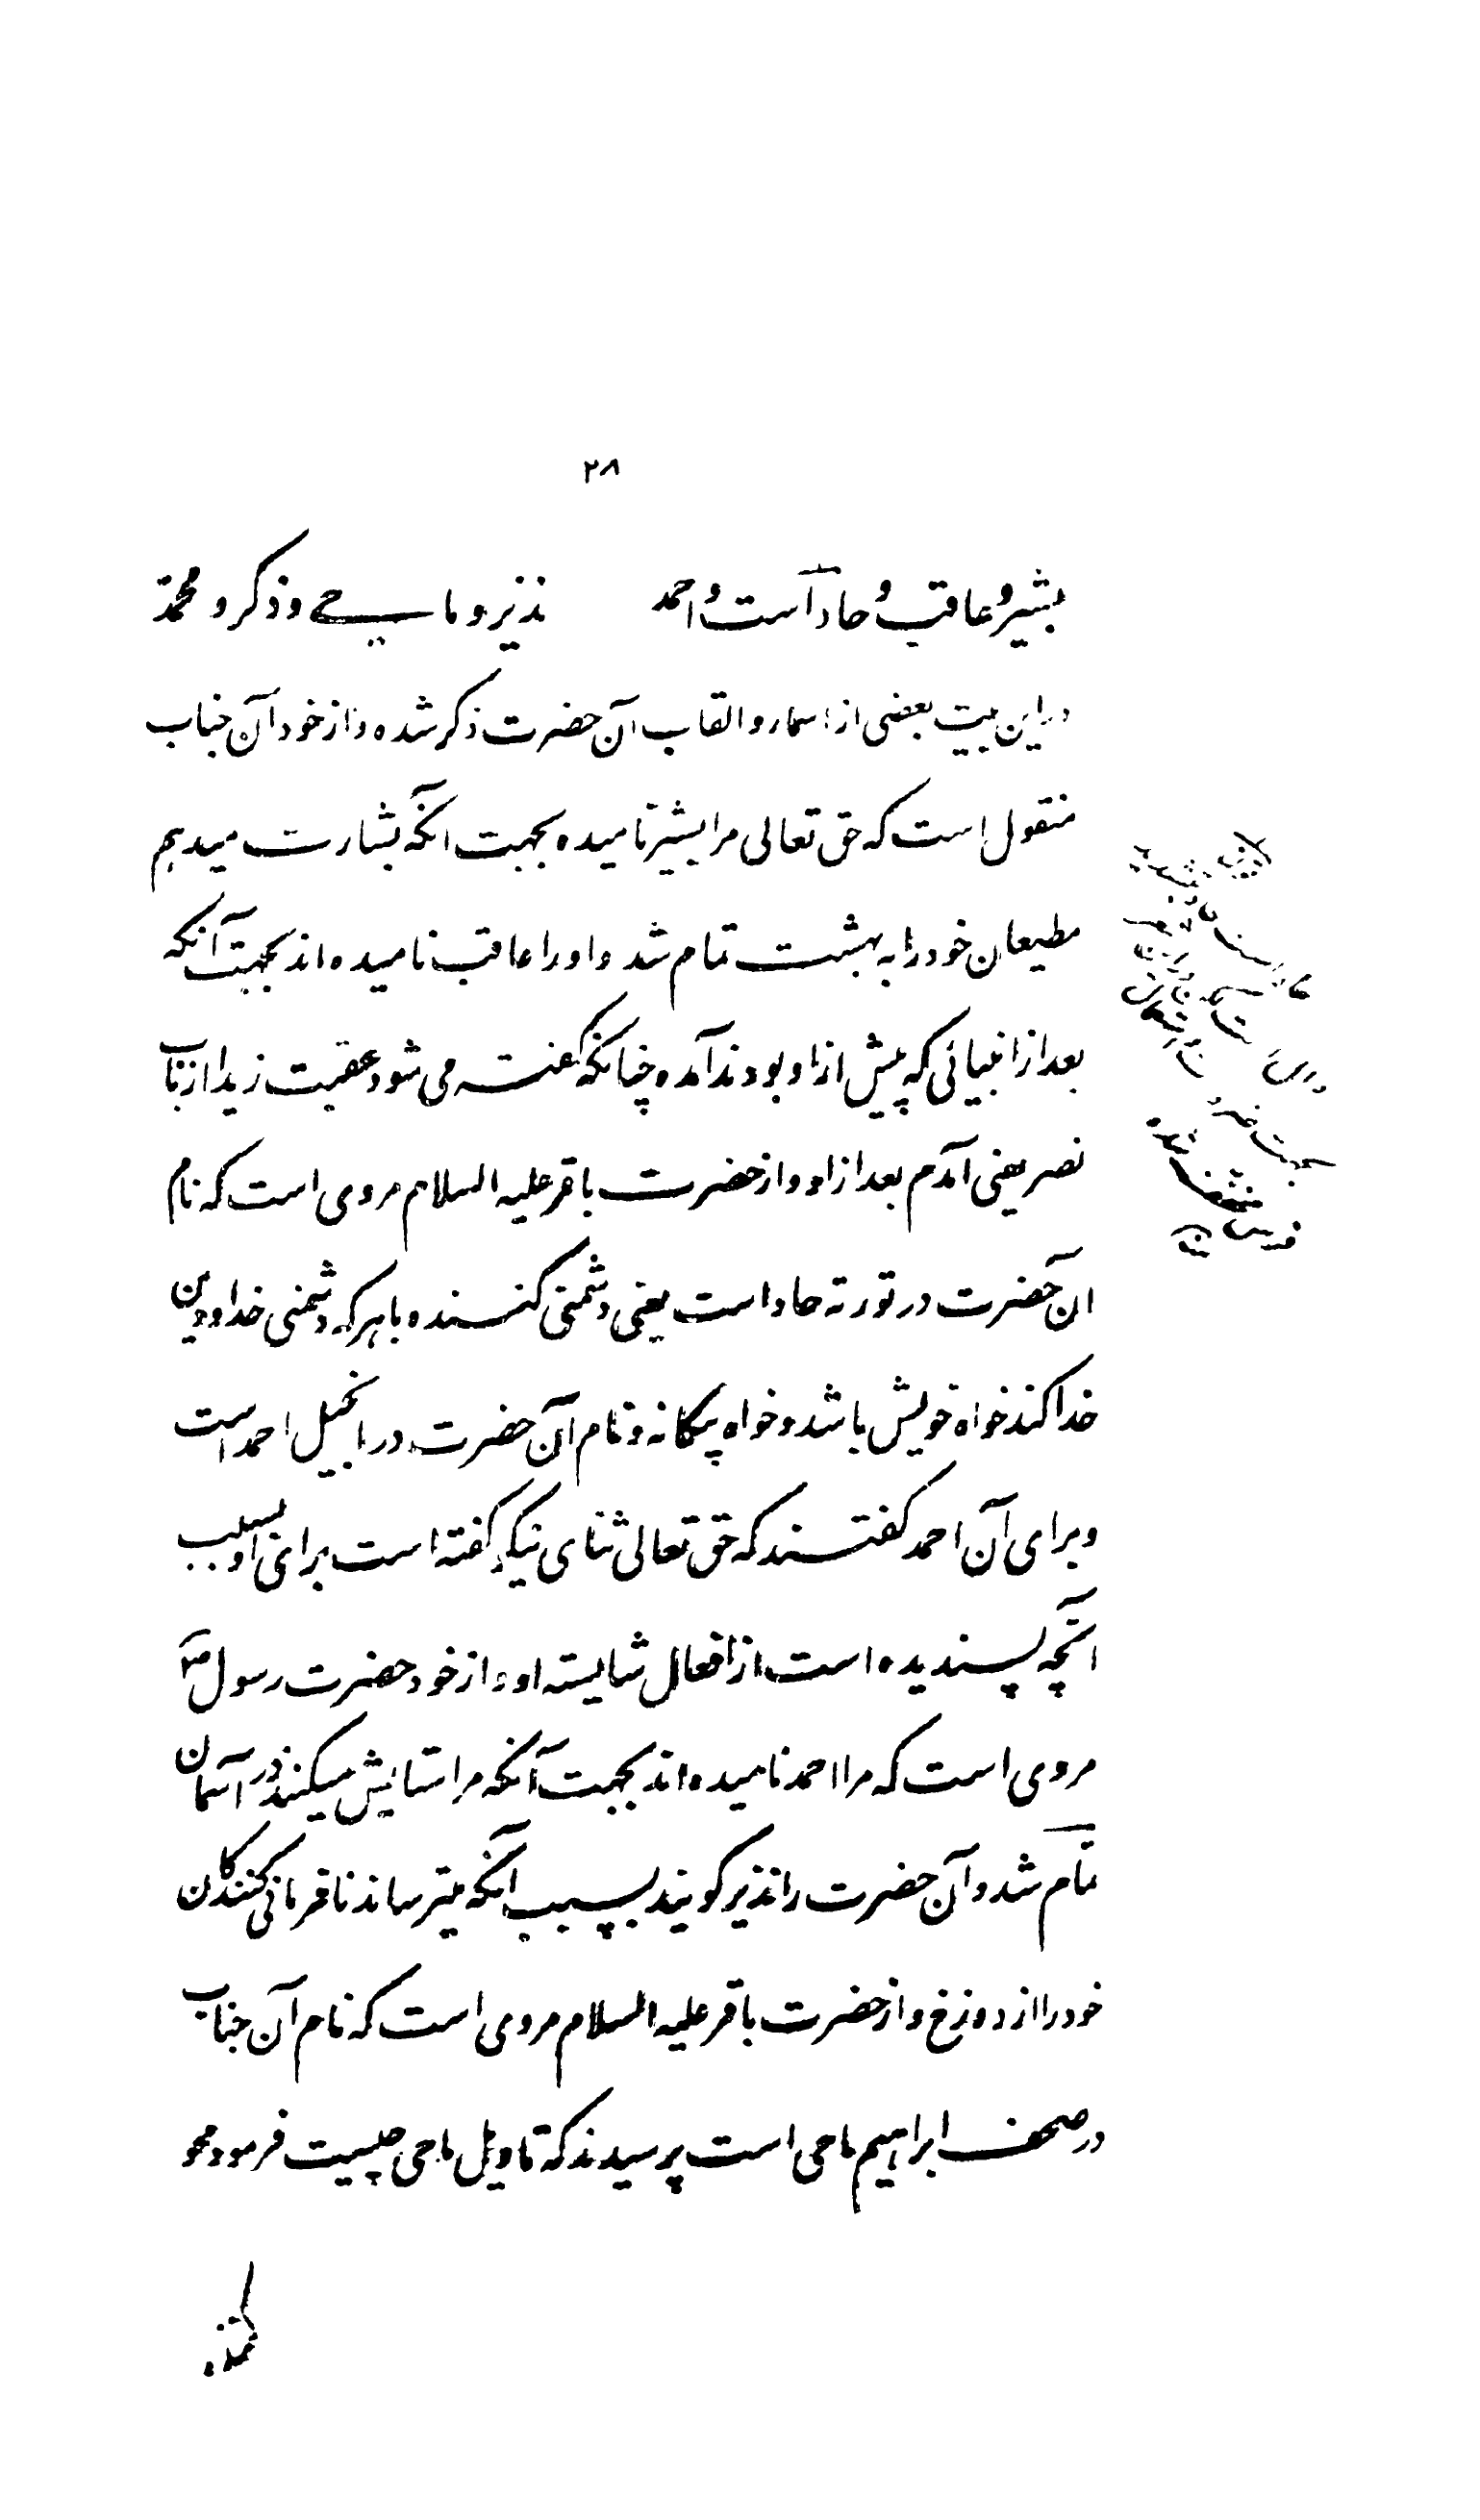 ۲۸
بشیر و عاقب و حاد است و احمد نذیر و ماحی و ذکر و محمد
دراین بیت بعضی از اسمار و القاب آن حضرت ذکر شده و از خود آن جناب
منقول است که حق تعالی مرا بشیر نامیده بجهت آنکه بشارت میدهم
مطیعان خود را به بهشت تمام شد و او را عاقب نامیده اند بجهت آنکه
بعد از انبیائی که پیش از او بودند آمده چنانکه گفته می شود عقبت زیدا از باب
نصر یعنی آمدم بعد از او و از حضرت باقر علیه السلام مروی است که نام
آن حضرت در توریة حاد است یعنی دشمنی کننده با هر که دشمنی خدا و دین
خدا کند خواه خویش باشد و خواه بیگانه و نام آن حضرت در انجیل احمد است
و برای آن احمد گفتند که حق تعالی ثنای نیکو گفته است برای او بسبب
آنچه پسندیده است از افعال شایسته او و از خود حضرت رسول ص
مروی است که مرا احمد نامیده اند بجهت آنکه مرا ستایش میکنند در آسمان
تمام شد و آن حضرت را نذیر گویند بسبب آنکه میترساند نافرمانی کنندگان
خود را از دوزخ و از حضرت باقر علیه السلام مروی است که نام آن جناب
در صحف ابراهیم ماحی است پرسیدند که تاویل ماحی چیست فرمود محو